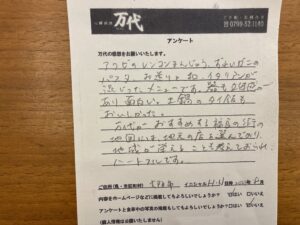 万代
ご予約・お問合せ
☎0799-52-1140
アンケート
万代の感想をお願いいたします。
アワビのレンコンまんじゅう、ずわいガニの
パスタ お造りと和、イタリアンが
混じったメニューです。器も
あり面白い。土鍋のタイ飯も
おいしかった。
万代が おすすめする 街の
地図には、地元の店を選んであり
地域が栄えることも考えておられ
ハートフルです。
ご住所(県・市区町村)
イニシャル H.H
内容をホームページなどに掲載してもよろしいでしょうか?
はい いいえ
アンケートと食事中の写真の掲載もしてもよろしいでしょうか?
はい いいえ
(個人情報は公開いたしません)